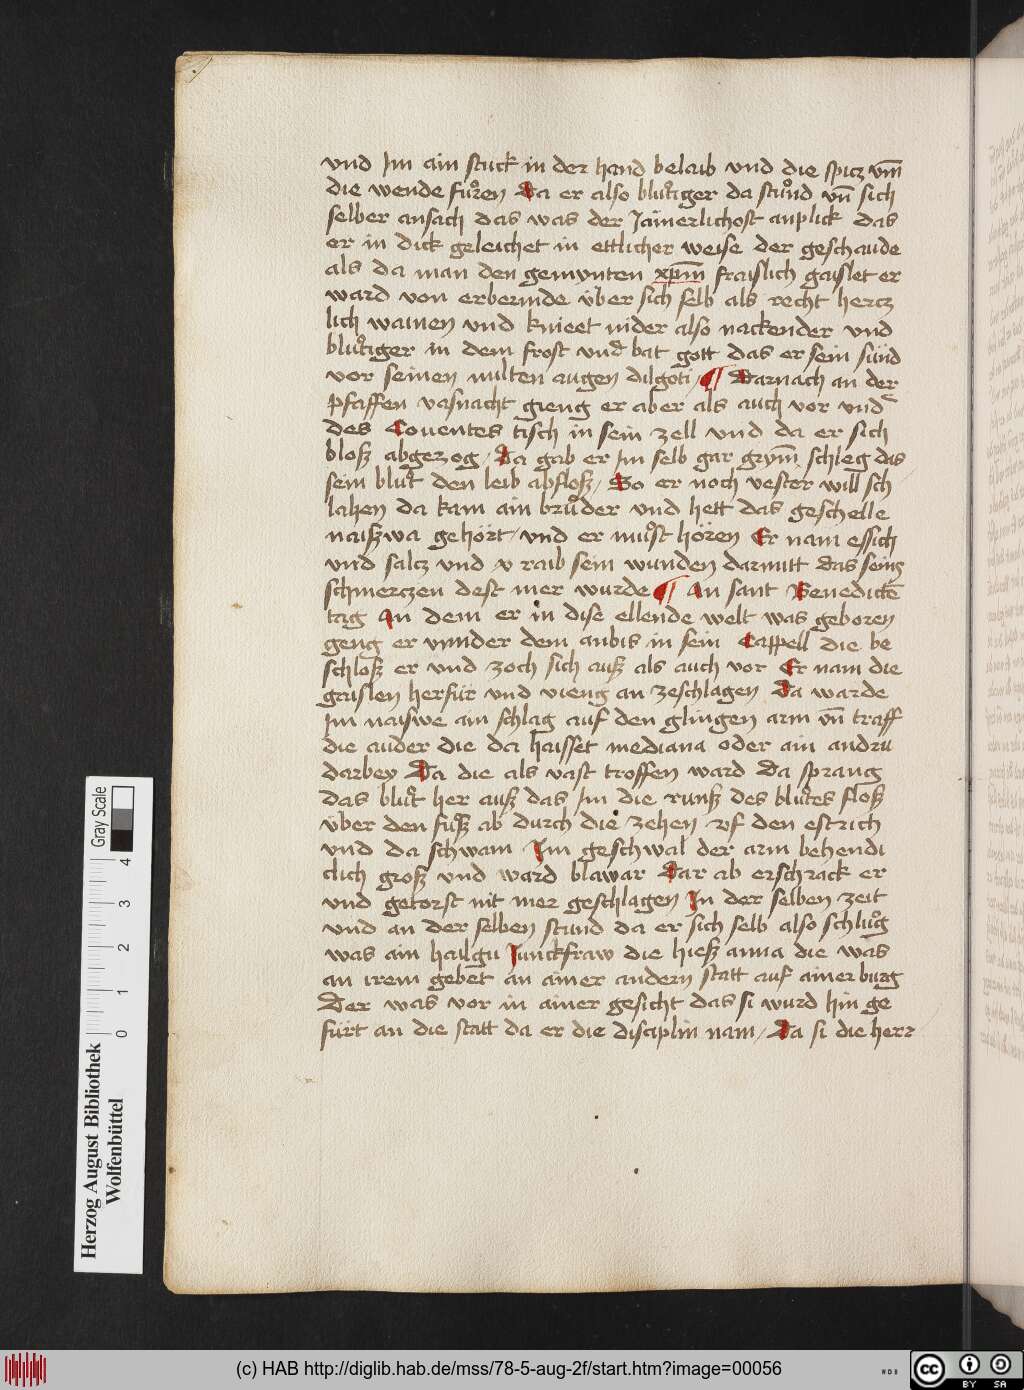 vnd Im ain stuck in der hand belaib vnd die spicz vm̄
die wende fuͦren Da er also bluͦtiger da stuͦnd vn̄ sich
selber ansach das was der Jainerlichost anplick das
er in dick geleichet in ettlicher weise der geschaude
als da man den gemynten xpm̄ fraislich gaislet er
ward von erbermde über sich selb als recht hercz
lich wainen vnd knieet nider also nackender vnd
bluͦtiger in dem frost vnd bat gott das er sein sünd
vor seinen milten augen dilgoti / ¶ Darnach an der
pfaffen vasnacht gieng er aber als auch vor vnd
des Couentes tisch in sein zell vnd da er sich
bloß abgezog / Da gab er Im selb gar grym̄ schleg das
sein bluͦt den leib abfloß / So er noch vester will sch
lahen da kam ain bruͦder vnd hett das geschelle
naißwa gehört / vnd er muͦst hören Er nam essich
vnd salcz vnd v raib sein wunden darmitt das seins
schmerczen dest mer wurde ¶ An sant Benedicte͂
tag An dem er in dise ellende welt was geboren
geng er vnnder dem anbis in sein Cappell die be
schloß er vnd zoch sich auß als auch vor Er nam die
gaislen herfür vnd vieng an zeschlagen Da warde
Im naiswe ain schlag auf den glingen arm vn̄ traff
die auder die da haisset mediana oder ain andru
darbey Da die als vast troffen ward Da sprang
das bluͦt her auß das Im die runß des bluͦtes floß
über den fuͦß ab durch die zehen vf den estrich
vnd da schwam Im geschwal der arm behendi
clich groß vnd ward blawar Dar ab erschrack er
vnd getorst nit mer geschlagen In der selben zeit
vnd an der selben stund da er sich selb also schluͦg
was ain hailgu Junckfraw die hieß anna die was
an irem gebet an ainer andern statt auf ainer burg
Der was vor in ainer gesicht das si wurd hin ge
fürt an die statt da er die disciplin nam / Da si die herr
Herzog August Bibliothek
Wolfenbüttel
Gray Scale
0 1 2 3 4
(c) HAB http://diglib.hab.de/mss/78-5-aug-2f/start.htm?image=00056
WDB
cc BY SA